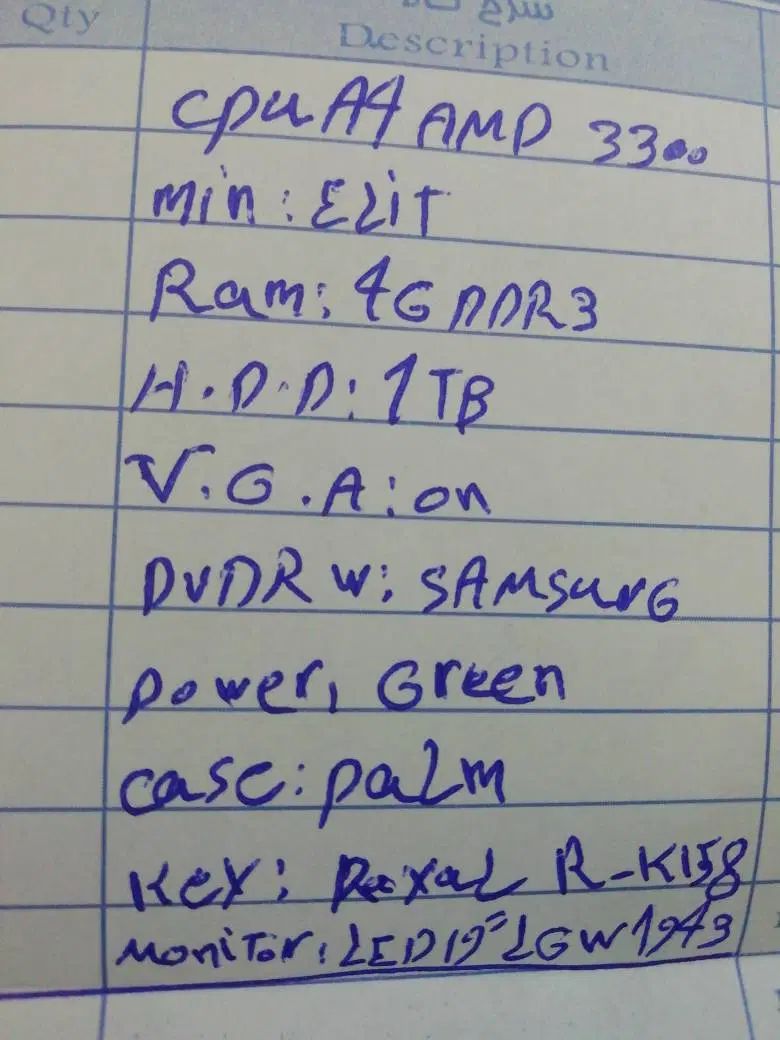 Qty
شرح
Description
cpu A4 AMD 3300
min: Elit
Ram: 4G DDR3
H.D.D: 1TB
V.G.A: on
DVDRW: SAMSUNG
power, Green
case: paLm
Key: R-K158
Monitor: LED 19" LGW1943